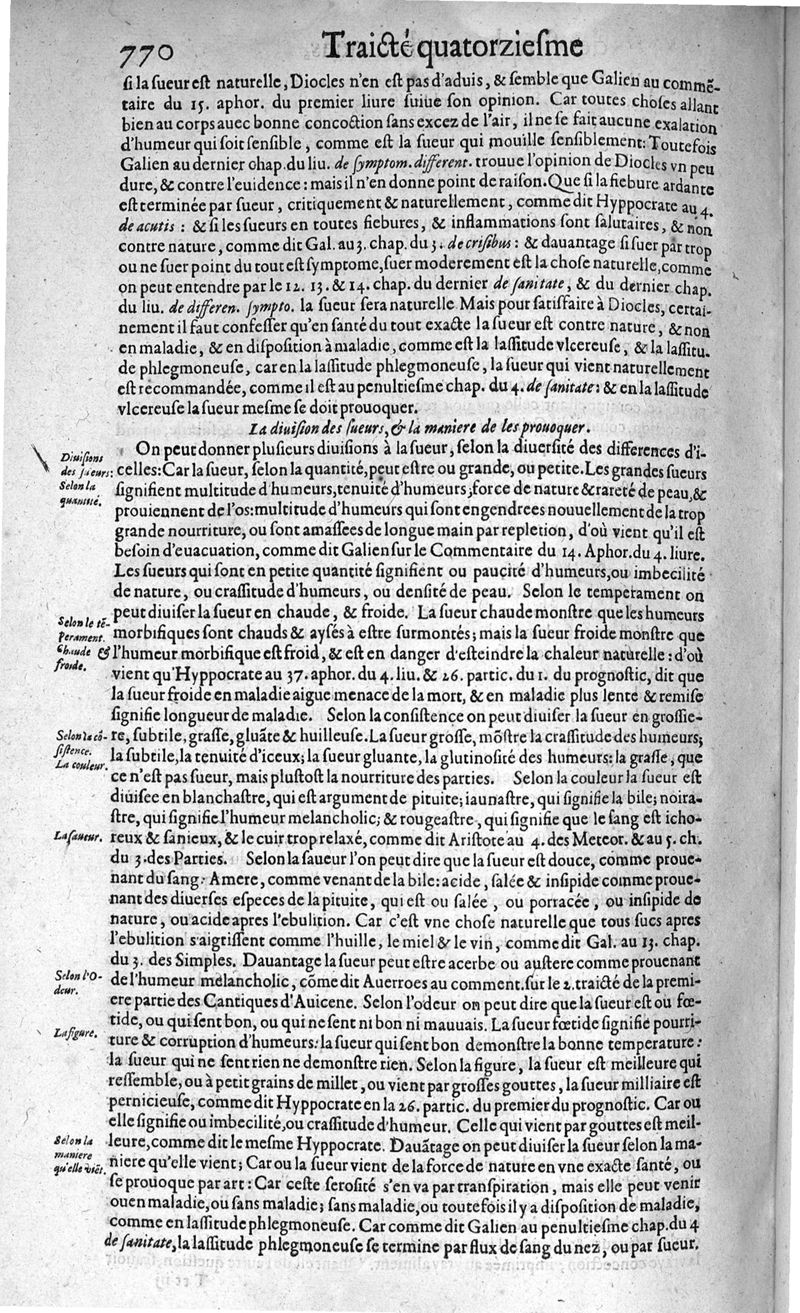 770 Traicté quatorziesme
si la sueur est naturelle, Diocles n'en est pas d'aduis, & semble que Galien au commē-
taire du 15. aphor. du premier liure suiue son opinion. Car toutes choses allant
bien au corps auec bonne concoction sans excez de l'air, il ne se fait aucune exalation
d'humeur qui soit sensible, comme est la sueur qui mouille sensiblement: Toutefois
Galien au dernier chap. du liu. de symptom. different. trouue l'opinion de Diocles vn peu
dure, & contre l'euidence: mais il n'en donne point de raison. Que si la fiebure ardante
est terminée par sueur, critiquement & naturellement, comme dit Hyppocrate au 4.
de acutis : & si les sueurs en toutes fiebures, & inflammations sont salutaires, & non
contre nature, comme dit Gal. au 3. chap. du 3. de crisibus: & dauantage si suer par trop
ou ne suer point du tout est symptome, suer moderement est la chose naturelle, comme
on peut entendre par le 12. 13. & 14. chap. du dernier de sanitate, & du dernier chap.
du liu. de differen. sympto. la sueur sera naturelle. Mais pour satisfaire à Diocles, certai-
nement il faut confesser qu'en santé du tout exacte la sueur est contre nature, & non
en maladie, & en disposition à maladie, comme est la lassitude vlcereuse, & la lassitu.
de phlegmoneuse, car en la lassitude phlegmoneuse, la sueur qui vient naturellement
est recommandée, comme il est au penultiesme chap. du 4. de sanitate: & en la lassitude
vlcereuse la sueur mesme se doit prouoquer.
La diuision des sueurs, & la maniere de les prouoquer.
Diuisions
des sueurs:
Selon la
quantité.
On peut donner plusieurs diuisions à la sueur, selon la diuersité des differences d'i-
celles: Car la sueur, selon la quantité, peut estre ou grande, ou petite. Les grandes sueurs
signifient multitude d'humeurs, tenuité d'humeurs, force de nature & rareté de peau, &
prouiennent de l'os: multitude d'humeurs qui sont engendrees nouuellement de la trop
grande nourriture, ou sont amassees de longue main par repletion, d'où vient qu'il est
besoin d'euacuation, comme dit Galien sur le Commentaire du 14. Aphor. du 4. liure.
Les sueurs qui sont en petite quantité signifient ou paucité d'humeurs, ou imbecilité
de nature, ou crassitude d'humeurs, ou densité de peau. Selon le temperament on
Selon le tē-
perament.
Chaude &
froide.
peut diuiser la sueur en chaude, & froide. La sueur chaude monstre que les humeurs
morbifiques sont chauds & aysés à estre surmontés; mais la sueur froide monstre que
l'humeur morbifique est froid, & est en danger d'esteindre la chaleur naturelle: d'où
vient qu'Hyppocrate au 37. aphor. du 4. liu. & 26. partic. du 1. du prognostic, dit que
la sueur froide en maladie aigue menace de la mort, & en maladie plus lente & remise
signifie longueur de maladie. Selon la consistence on peut diuiser la sueur en grossie-
Selon la cō-
sistence.
La couleur.
re, subtile, grasse, gluāte & huilleuse. La sueur grosse, mōstre la crassitude des humeurs;
la subtile, la tenuité d'iceux; la sueur gluante, la glutinosité des humeurs: la grasse, que
ce n'est pas sueur, mais plustost la nourriture des parties. Selon la couleur la sueur est
diuisee en blanchastre, qui est argument de pituite; iaunastre, qui signifie la bile; noira-
stre, qui signifie l'humeur melancholic; & rougeastre, qui signifie que le sang est icho-
La saueur.
reux & sanieux, & le cuir trop relaxé, comme dit Aristote au 4. des Meteor. & au 5. ch.
du 3. des Parties. Selon la saueur l'on peut dire que la sueur est douce, comme proue-
nant du sang: Amere, comme venant de la bile: acide, salée & insipide comme proue-
nant des diuerses especes de la pituite, qui est ou salée, ou porracée, ou insipide de
nature, ou acide apres l'ebulition. Car c'est vne chose naturelle que tous sucs apres
l'ebulition s'aigrissent comme l'huille, le miel & le vin, comme dit Gal. au 13. chap.
du 3. des Simples. Dauantage la sueur peut estre acerbe ou austere comme prouenant
Selon l'O-
deur.
de l'humeur melancholic, cōme dit Auerroes au comment. sur le 2. traicté de la premi-
ere partie des Cantiques d'Auicene. Selon l'odeur on peut dire que la sueur est ou fœ-
tide, ou qui sent bon, ou qui ne sent ni bon ni mauuais. La sueur fœtide signifie pourri-
La figure.
ture & corruption d'humeurs: la sueur qui sent bon demonstre la bonne temperature:
la sueur qui ne sent rien ne demonstre rien. Selon la figure, la sueur est meilleure qui
ressemble, ou à petit grains de millet, ou vient par grosses gouttes, la sueur milliaire est
pernicieuse, comme dit Hyppocrate en la 26. partic. du premier du prognostic. Car ou
elle signifie ou imbecilité, ou crassitude d'humeur. Celle qui vient par gouttes est meil-
Selon la
maniere
qu'elle viēt.
leure, comme dit le mesme Hyppocrate. Dauātage on peut diuiser la sueur selon la ma-
niere qu'elle vient; Car ou la sueur vient de la force de nature en vne exacte santé, ou
se prouoque par art: Car ceste serosité s'en va par transpiration, mais elle peut venir
ou en maladie, ou sans maladie; sans maladie, ou toutefois il y a disposition de maladie,
comme en lassitude phlegmoneuse. Car comme dit Galien au penultiesme chap. du 4
de sanitate, la lassitude phlegmoneuse se termine par flux de sang du nez, ou par sueur.